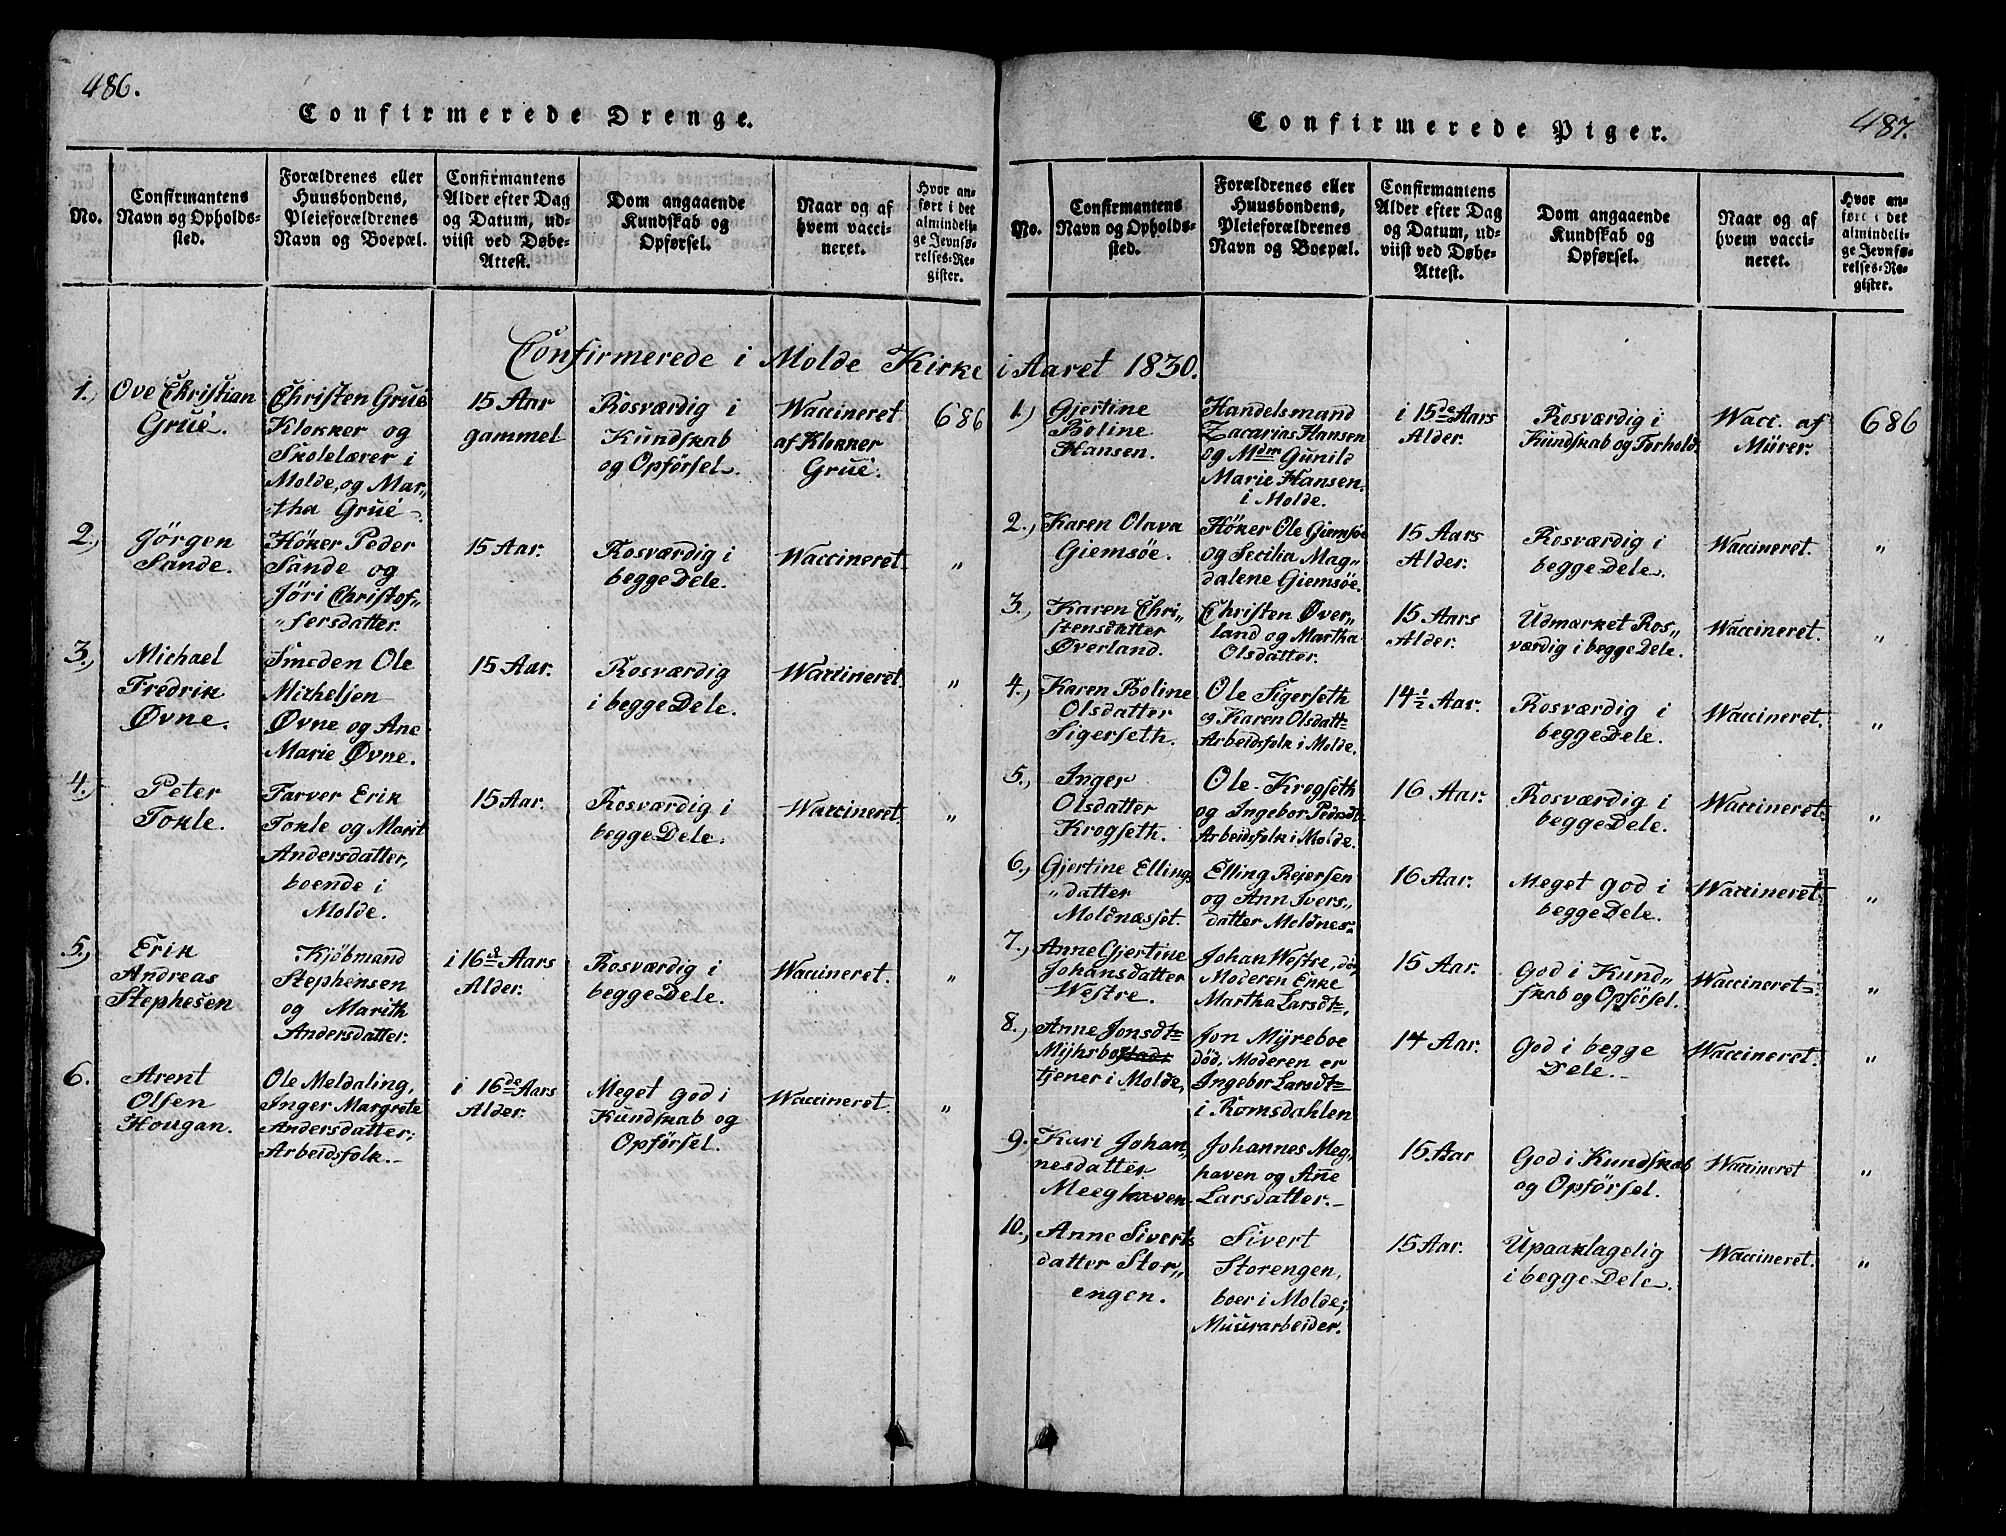 486.
Confirmerede Drenge.
No.
Confirmantens
Navn og Opholds-
sted.
Forældrenes eller
Huusbondens,
Pleieforældrenes
Navn og Boepæl.
Confirmantens
Alder efter Dag
og Datum, ud-
viist ved Døbe-
Attest.
Dom angaaende
Kundskab og
Opførsel.
Naar og af
hvem vacci-
neret.
Hvor an-
ført i det
almindeli-
ge Jevnfø-
relses-Re-
gister.
Confirmerede i Molde Kirke i Aaret 1830.
1.,
Ove Christian
Grue.
Christen Grue
Klokker og
Skolelærer i
Molde, og Mar„
tha Grue
15 Aar
gammel
Rosværdig i
Kundskab
og Opførsel.
Waccineret
af Klokker
Grue.
686
2.,
Jörgen
Sande.
Höker Peder
Sande og
Jöri Christof„
„fersdatter.
15 Aar.
Rosværdig i
begge Dele.
Waccineret.
„
3.,
Michael
Fredrik
Øvne.
Smeden Ole
Michelsen
Øvne og Ane
Marie Øvne.
15 Aar.
Rosværdig
i begge Dele.
Waccineret.
„
4.,
Peter
Tokle.
Farver Erik
Tokle og Marit
Andersdatter,
boende i
Molde.
15 Aar.
Rosværdig i
begge Dele.
Waccineret.
„
5.,
Erik
Andreas
Stephesen
Kjøbmand
Stephensen
og Marith
Andersdatter.
i 16de Aars
Alder.
Rosværdig i
begge Dele.
Waccineret.
„
6.
Arent
Olsen
Hougan.
Ole Meldaling,
Inger Margrete
Andersdatter;
Arbeidsfolk.-
i 16de Aars
Alder.
Meget god i
Kundskab og
Opførsel.
Waccineret.
„
487.
Confirmerede Piger.
No.
Confirmantens
Navn og Opholds-
sted.
Forældrenes eller
Huusbondens,
Pleieforældrenes
Navn og Boepæl.
Confirmantens
Alder efter Dag
og Datum, ud-
viist ved Døbe-
Attest.
Dom angaaende
Kundskab og
Opførsel.
Naar og af
hvem vacci-
neret.
Hvor an-
ført i det
almindeli-
ge Jevnfø-
relses-Re-
gister.
1.,
Gjertine
Boline
Hansen.
Handelsmand
Zacarias Hansen
og Mdm Gunild
Marie Hansen.
i Molde.
i 15de Aars
Alder.
Rosværdig i
Kundskab og Forhold.
Wacc. af
Mürer.
686
2.,
Karen Olava
Giemsöe.
Höker Ole Giemsöe
og Secilia Mag„
dalene Giemsöe.
15 Aars
Alder.
Rosværdig i
begge Dele.
Waccineret.
„
3.,
Karen Chri„
stensdatter
Øverland.
Christen Øver„
land og Martha
Olsdatter.
15 Aars
Alder.
Udmærket Ros„
værdig i begge Dele.
Waccineret.
„
4.,
Karen Boline
Olsdatter
Sigerseth.
Ole Sigerseth
og Karen Olsdatt=
Arbeidsfolk i Molde.
14½ Aar.
Rosværdig i
begge Dele.
Waccineret.
„
5.,
Inger
Olsdatter
Krogseth.
Ole Krogseth
og Ingebor Pedrsdt=
Arbeidsfolk i Molde.
16 Aar.
Rosværdig i
begge Dele.
Waccineret.
„
6.,
Gjertine Elling„
„datter
Moldnæsset.
Elling Rejersen
og Ann Ivers„
datter Moldnes=
16 Aar.
Meget god i
begge Dele.
Waccineret.
„
7.,
Anne Gjertine
Johansdatter
Westre.
Johan Westre, död,
Moderen Enke
Martha Larsdt=,
15 Aar.
God i Kund„
skab og Opførsel.
Waccineret.
„
8.,
Anne Jonsdt=
tjener i Molde,
Jon Myreboe
död, Moderen er
Ingebor Larsdt=
i Romsdahlen
14 Aar.
God i begge
Dele.-
Waccineret.
„
9.
Kari Johan„
nesdatter
Meeghaven
Johannes Meg„
haven og Añe
Larsdatter.-
15 Aar
God i Kundskab
og Opførsel.
Waccineret
„
10.,
Anne Siverts
datter Stor„
engen.
Sivert
Storengen,
boer i Molde;
Muurarbeider.
15 Aar.
Upaaklagelig
i begge Dele.
Waccineret.
„